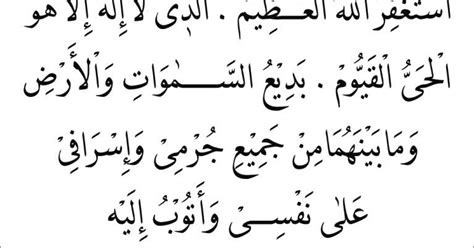 أَسْتَغْفِرُ اللهَ الْعَـــظِيْمَ . الَّذِى لَا إِلٰهَ إِلَّا هُوَ
الْحَىُّ الْقَيُّوْمُ . بَدِيْعُ السَّـــمٰوَاتِ وَالْأَرْضِ
وَمَابَيْنَهُمَامِنْ جَمِيْعِ جُرْمِىْ وَإِسْرَافِىْ
عَلٰى نَفْسِـــىْ وَأَتُوْبُ إِلَيْه